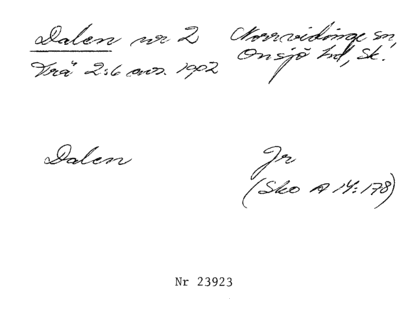 Dalen nr 2 Norrvidinge sn,
Onsjö hd, Sk.
Trä 2:6 avs. 1902
Dalen Jr
(Sko A 14:178)
Nr 23923